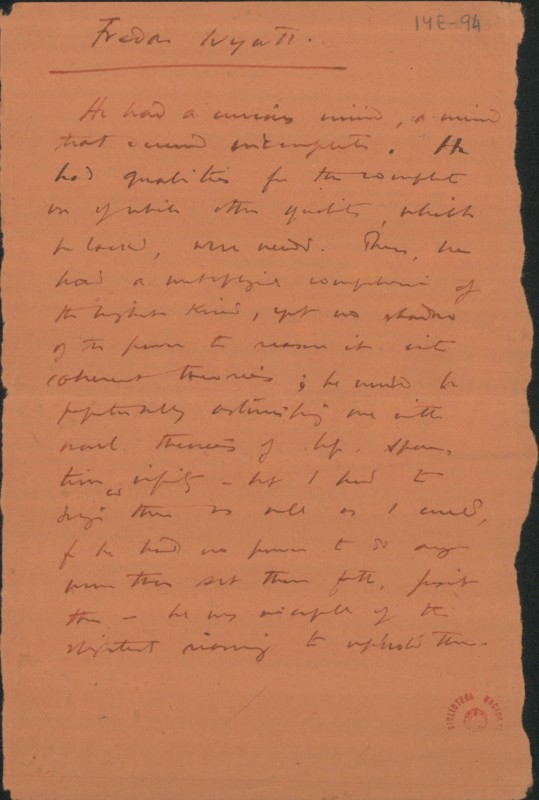 14E-94
Freder Wyatt.
He had a curious mind, a mind
that seemed incomplete. He
had qualities for the complete
use of which other qualities, which
he lacked, were needed. Thus, he
had a metaphysic comprehension of
the highest kind, yet no shadow
of the power to reason it into
coherent theories; he would be
perpetually astonishing me with
novel theories of life, space,
time, infinity - but I had to
them as well as I could,
for he had no power to do any
more than set them forth, posit
them - he was incapable of the
slightest reasoning to uphold them.
BIBLIOTECA NACIONAL